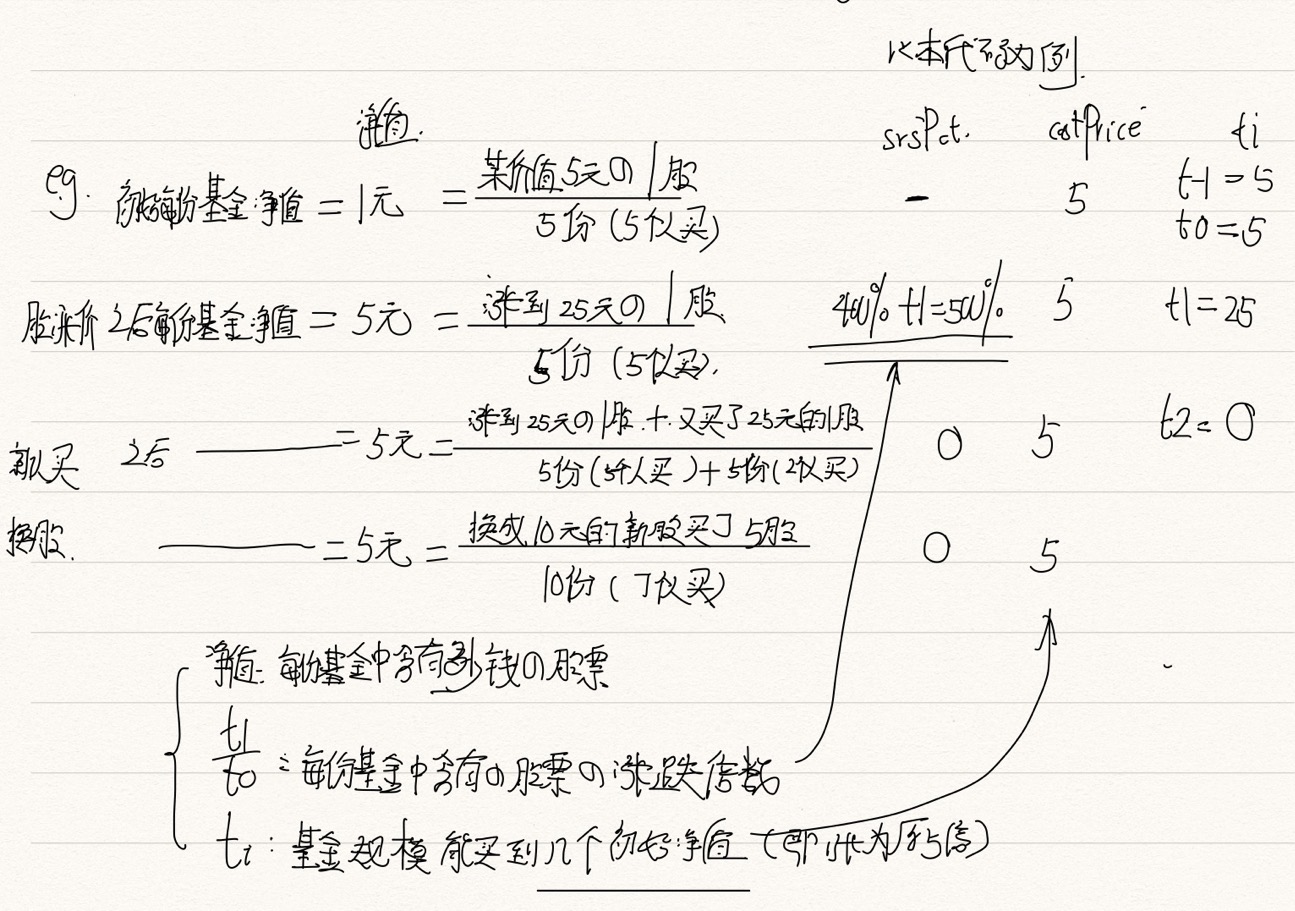 以本代码为例.
净值.
srsPct. costPrice ti
eg. 初始每份基金净值 = 1元 = 某价值5元の1股 / 5份 (5个人买) - 5 t-1 = 5 t0 = 5
股涨价 2后每份基金净值 = 5元 = 涨到25元の1股 / 5份 (5个人买). 400% +1=500% 5 t1 = 25
新人买 2后 —— = 5元 = 涨到25元の1股 + 又买了25元的1股 / 5份(5个人买)+5份(2个人买) 0 5 t2 = 0
换股. —— = 5元 = 换成10元的新股买了5股 / 10份 (7个人买) 0 5
净值: 每份基金中含有多少钱の股票
t1/t0 : 每份基金中含有の股票の涨跌倍数
ti : 基金规模能买到几个初始净值 (即涨为原5倍)